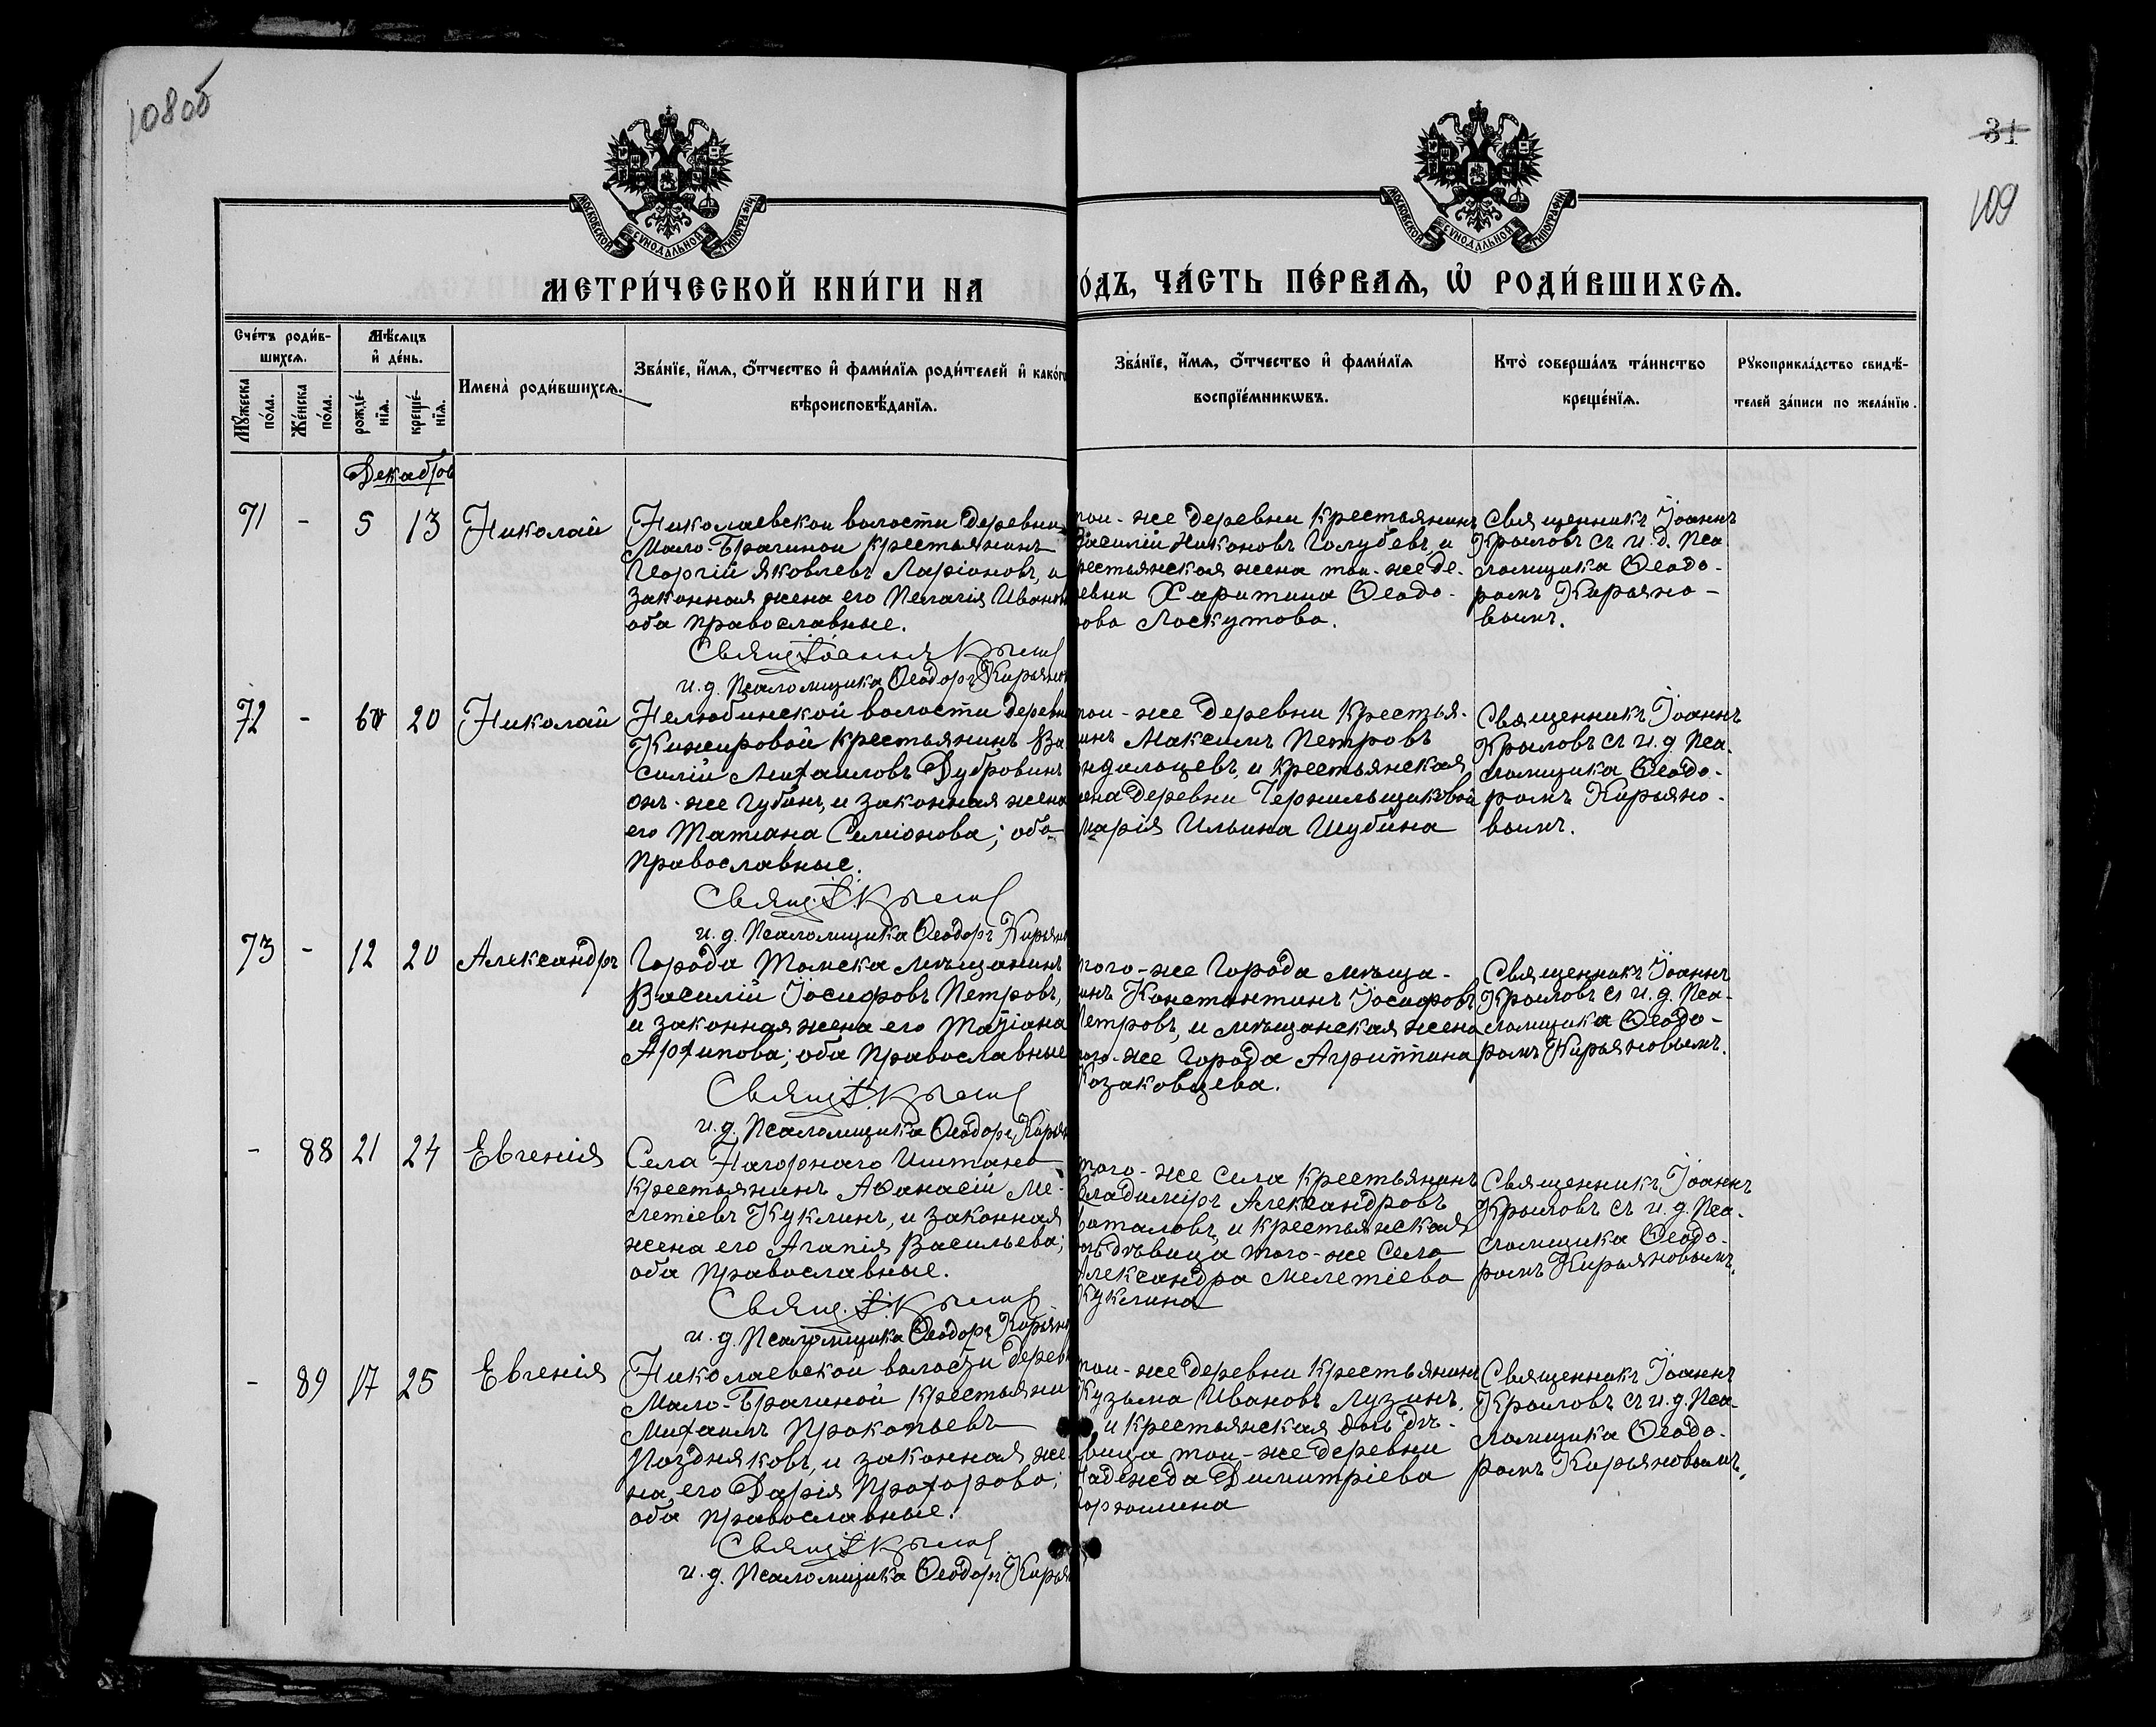 108об
31
109
МОСКОВСКОЙ СѴНОДАЛЬНОЙ ТИПОГРАФІИ
МОСКОВСКОЙ СѴНОДАЛЬНОЙ ТИПОГРАФІИ
МЕТРИ́ЧЕСКОЙ КНИ́ГИ НА
О́ДЪ, ЧА́СТЬ ПЕ́РВАѦ, Ѡ҆ РОДИ́ВШИХСѦ.
Сче́тъ роди́в-
шихсѧ.
Му́жеска по́ла.
Же́нска по́ла.
Мѣ́сѧцъ
и҆ де́нь.
рожде́-
нїѧ.
креще́-
нїѧ.
Имена̀ роди́вшихсѧ.
Зва́нїе, и҆́мѧ, ѻ҆́тчество и҆ фами́лїѧ роди́телей и҆ како́гѡ
вѣроисповѣ́данїѧ.
Зва́нїе, и҆́мѧ, ѻ҆́тчество и҆ фами́лїѧ
воспрїе́мникѡвъ.
Кто̀ соверша́лъ та́инство
креще́нїѧ.
Рꙋкоприкла́дство свидѣ́-
телей за́писи по жела́нїю.
Декабрь
71 - 5 13 Николай
Николаевской волости деревни
Мало-Брагиной крестьянинъ
Георгій Яковлевъ Ларіоновъ, и
законная жена его Пелагія Иванов
оба православные.
Свящ. Іоаннъ Крыл
и.д. Псаломщика Ѳеодоръ Кирьянов
той-же деревни крестьянинъ
Василій Никоновъ Голубевъ, и
рестьянская жена той-же де-
евни Харитина Ѳеодо-
рова Лоскутова.
Священникъ Іоаннъ
Крыловъ съ и.д. Пса
ломщика Ѳеодо-
ромъ Кирьяно-
вымъ.
72 - 6 20 Николай
Нелюбинской волости деревн
Кижировой крестьянинъ Ва
силій Михаиловъ Дубровинъ
онъ-же Губинъ, и законная жена
его Татіана Симіонова; оба
православные.
Свящ. І. Крыл
и.д. Псаломщика Ѳеодоръ Кирьян
той-же деревни крестья-
инъ Максимъ Петровъ
ндальцевъ, и крестьянская
ена деревни Чернильщиковой
Марія Ильина Шубина
Священникъ Іоаннъ
Крыловъ съ и.д. Пса-
ломщика Ѳеодо-
ромъ Кирьяно-
вымъ.
73 - 12 20 Александръ
Города Томска мѣщанинъ
Василій Іосифовъ Петровъ,
и законная жена его Татіана
Архипова; оба православные
Свящ. І. Крыл
и.д. Псаломщика Ѳеодоръ Кирья
того-же города мѣща-
инъ Константинъ Іосифовъ
Петровъ, и мѣщанская жена
ого-же города Агриппина
Козаковцева.
Священникъ Іоаннъ
Крыловъ съ и.д. Пса-
ломщика Ѳеодо-
ромъ Кирьяновымъ.
- 88 21 24 Евгенія
Села Нагорнаго Иштана
крестьянинъ Аѳанасій Ме-
летіевъ Куклинъ, и законная
жена его Агапія Васильева;
оба православные.
Свящ. І. Крыл
и.д. Псаломщика Ѳеодоръ Кирьян
того-же села крестьянинъ
Владиміръ Александровъ
оталовъ, и крестьянская
очь дѣвица того-же села
Александра Мелетіева
Куклина
Священникъ Іоаннъ
Крыловъ съ и.д. Пса-
ломщика Ѳеодо-
ромъ Кирьяновымъ.
- 89 17 25 Евгенія
Николаевской волости дерев
Мало-Брагиной крестьяни
Михаилъ Прокопьевъ
Поздняковъ, и законная же
на его Дарія Прохорова;
оба православные.
Свящ. І. Крыл
и.д. Псаломщика Ѳеодоръ Кирья
той-же деревни крестьянинъ
Кузьма Ивановъ Лузинъ,
и крестьянская дочь дѣ-
вица той-же деревни
Надежда Димитріева
Священникъ Іоаннъ
Крыловъ съ и.д. Пса-
ломщика Ѳеодо-
ромъ Кирьяновымъ.